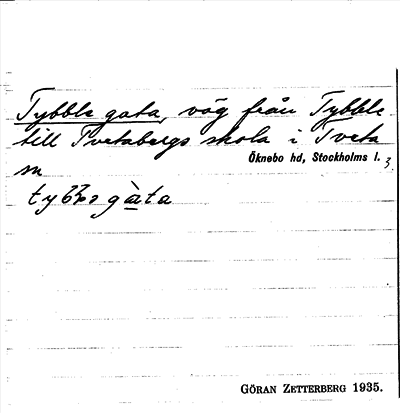 Tybble gata, väg från Tybble
till Tvetabergs skola i Tveta
sn
Öknebo hd, Stockholms l. 3.
tybbə gàta
GÖRAN ZETTERBERG 1935.